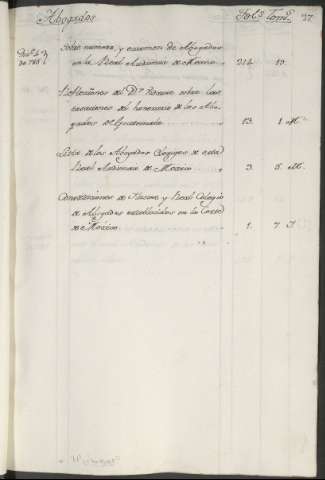 Abogados Fol.s Tom.s 37
Sobre numero, y examen de Abogados
en la Real Audiencia de Mexico 214 13.
de 785
Reflexiones del D.r sobre las
tasaciones del honorario de los Abo-
gados de Guatemala 13. 1. M.
Lista de los Abogados Colegiales de esta
Real Audiencia de Mexico 3. 5. M.
Constituciones de Ilustre y Real Colegio
de Abogados establecidos en la Corte
de Mexico 1. 7. I.